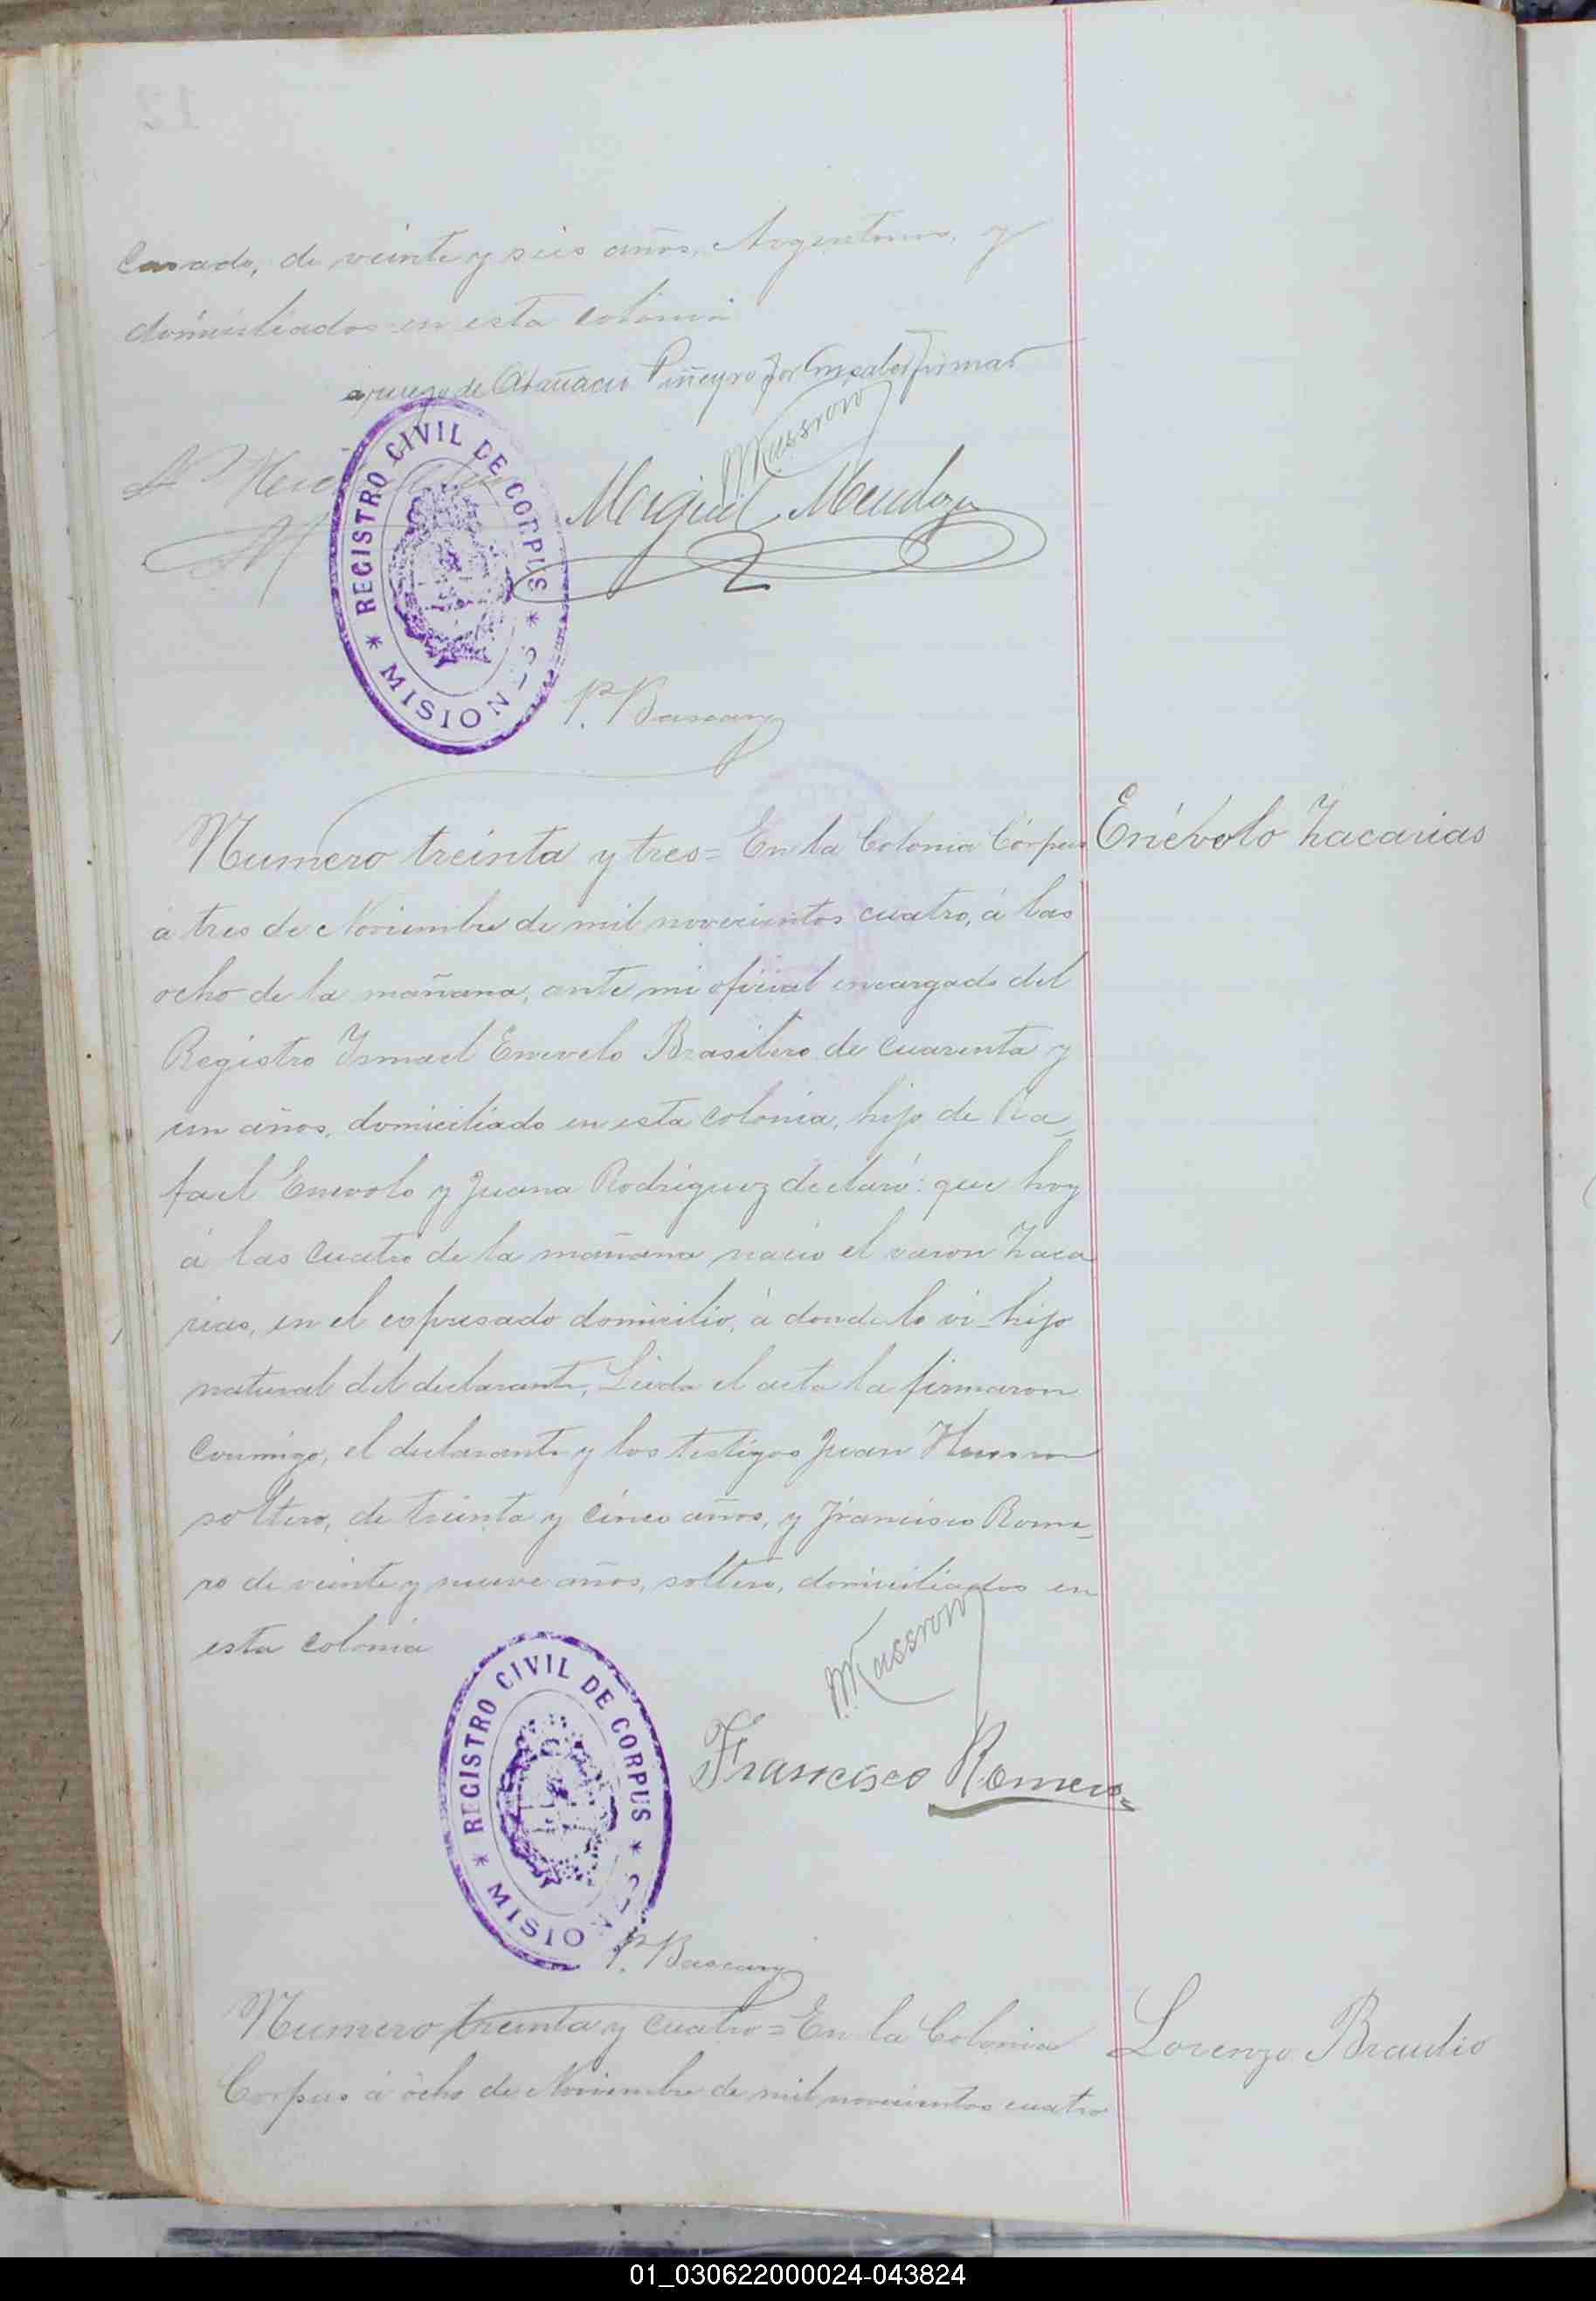 casado, de veinte y seis años, Argentinos, y
domiciliados en esta colonia
a ruego de Piñeyro por no saber firmar
Massron
Miguel Mendoza
REGISTRO CIVIL DE CORPUS
* MISIONES *
P. Bascary
Numero treinta y tres = En la Colonia Córpus
Enévolo Zacarias
á tres de Noviembre de mil novecientos cuatro, á las
ocho de la mañana, ante mi oficial encargado del
Registro Ismael Enevolo Brasilero de cuarenta y
un años, domiciliado en esta colonia, hijo de Ra_
fael Enevolo y Juana Rodriguez declaró: que hoy
á las cuatro de la mañana nació el varon Zaca
rias, en el expresado domicilio, á donde lo vi_hijo
natural del declarante, Leida el acta la firmaron
conmigo, el declarante y los testigos Juan
soltero, de treinta y cinco años, y Francisco Rome_
ro de veinte y nueve años, soltero, domiciliados en
esta colonia
Massron
REGISTRO CIVIL DE CORPUS
* MISIONES *
Francisco Romero=
P. Bascary
Numero treinta y cuatro = En la Colonia
Lorenzo Braulio
Corpus á ocho de Noviembre de mil novecientos cuatro
01_030622000024-043824